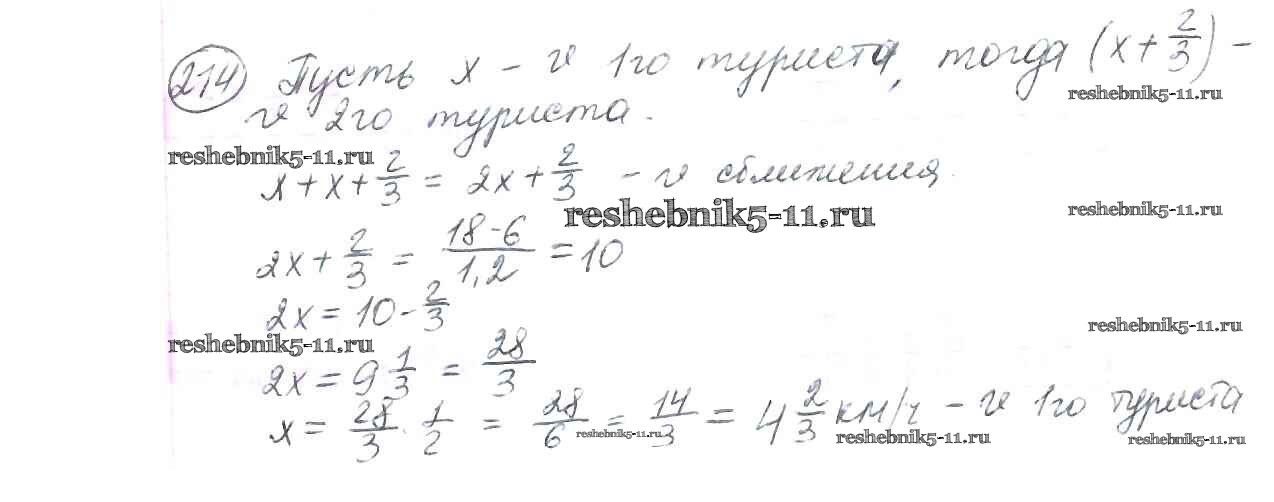 214 Пусть x – v 1го туриста, тогда (x + 2/3) –
reshebnik5-11.ru
v 2го туриста.
reshebnik5-11.ru
x + x + 2/3 = 2x + 2/3 – v сближения.
reshebnik5-11.ru reshebnik5-11.ru
2x + 2/3 = (18-6)/1,2 = 10
2x = 10 - 2/3
reshebnik5-11.ru reshebnik5-11.ru
2x = 9 1/3 = 28/3
x = 28/3 · 1/2 = 28/6 = 14/3 = 4 2/3 км/ч – v 1го туриста
reshebnik5-11.ru reshebnik5-11.ru reshebnik5-11.ru